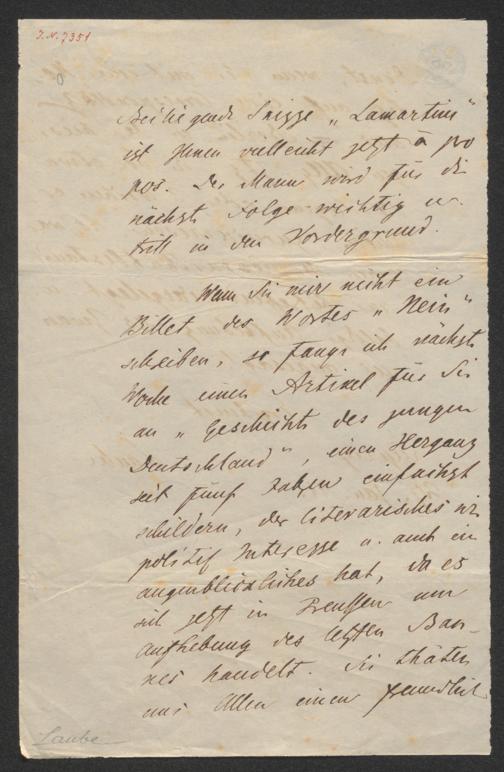 J.N. 7351
Beiliegende Skizze „Lamartine"
ist Ihnen vielleicht jetzt à pro
pos. Der Mann wird für die
nächste Folge wichtig u.
tritt in den Vordergrund.
Wenn Sie mir nicht ein
Billet des Wortes „Nein"
schreiben, so fange ich nächste
Woche einen Artikel für Sie
an „Geschichte des jungen
Deutschland", einen Hergang
seit fünf Jahren einfachst
schildern, der literarisches wie
politisch Interesse u. auch ein
augenblickliches hat, da es
sich jetzt in Preussen um
Aufhebung des letzten Ban-
nes handelt. Sie thäten
uns Allen einen freundlich
Laube